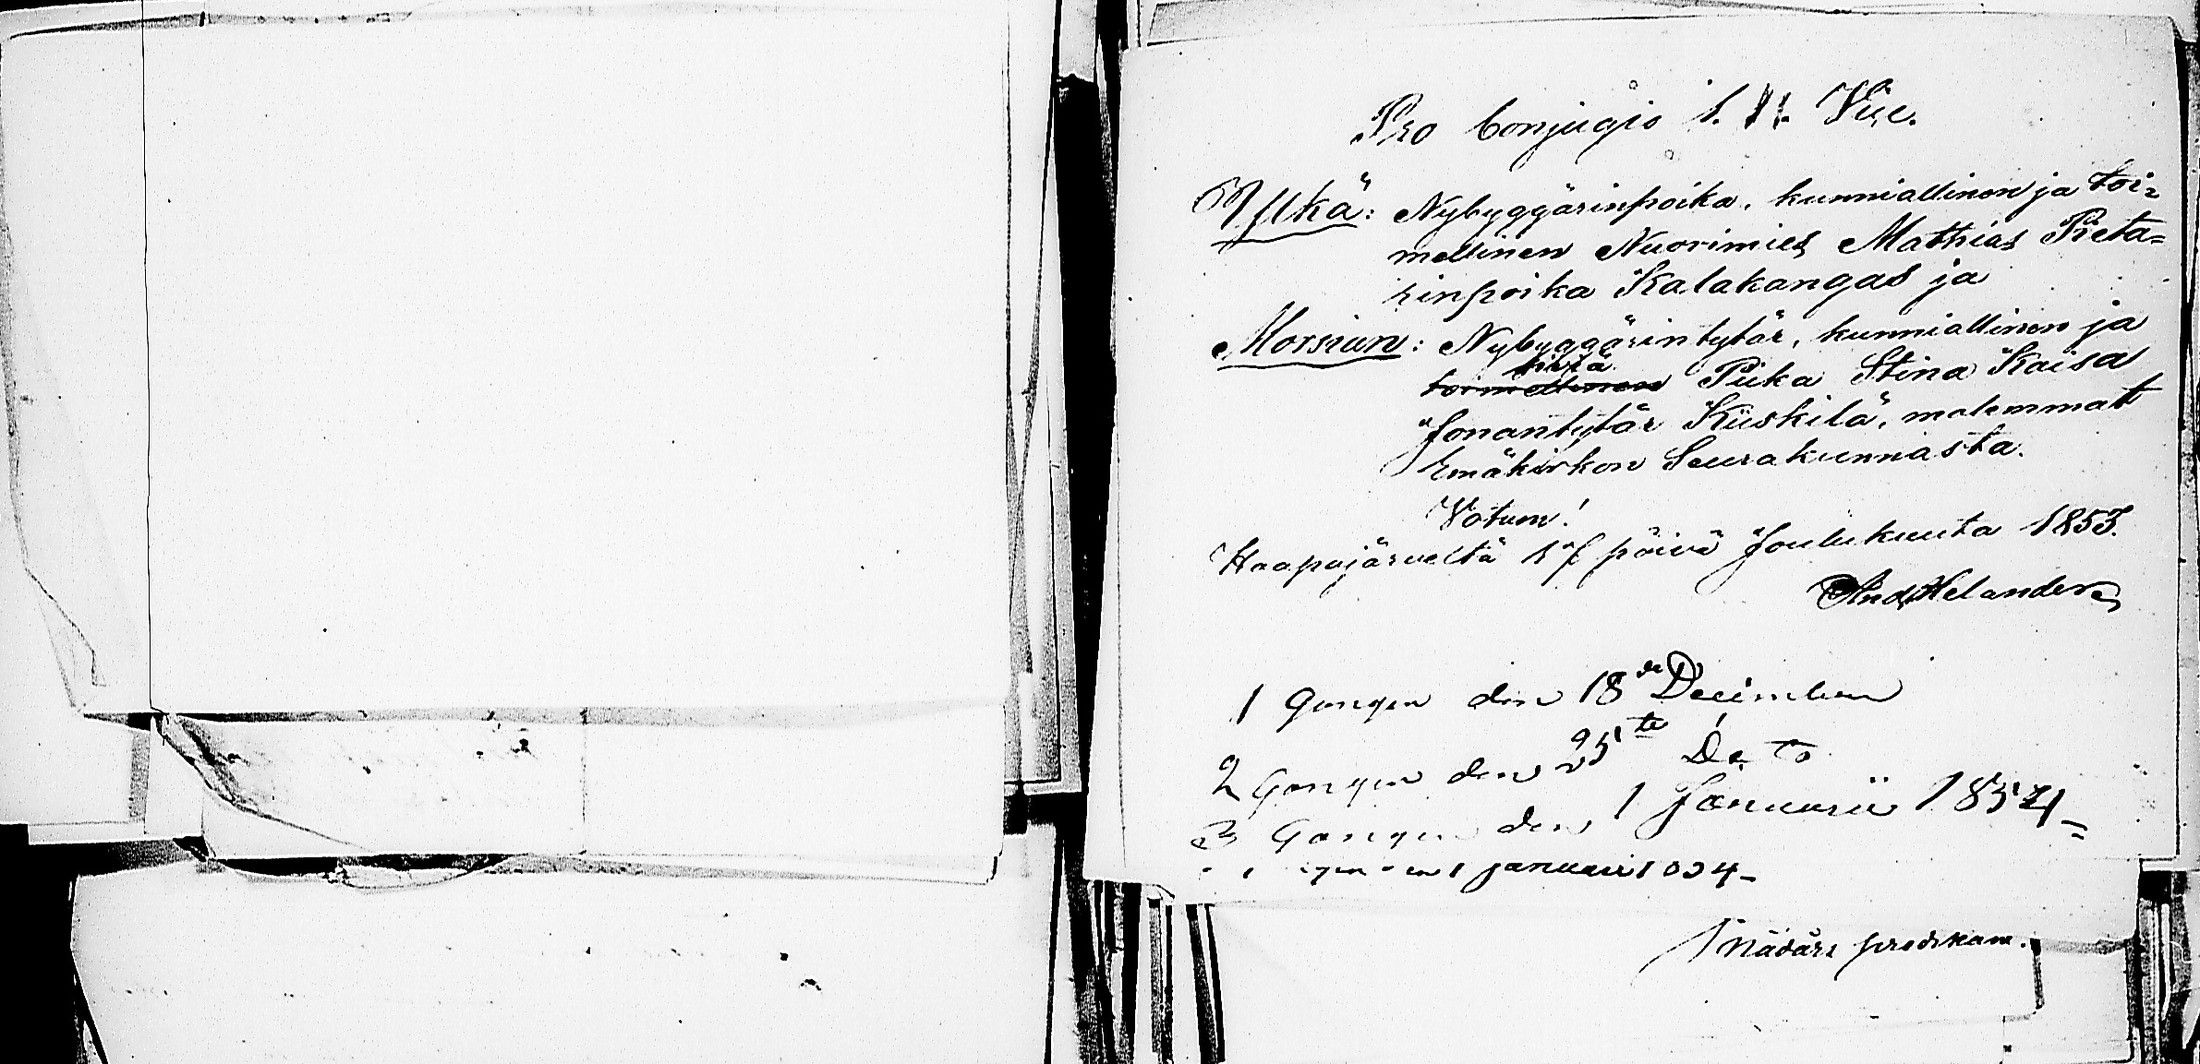 Pro Conjugio 1. Vice.
Ylkä: Nybyggärinpoika, kunniallinen ja toi=
mellinen Nuorimies Mathias Pieta=
rinpoika Kalakangas ja
Morsian: Nybyggärintytär, kunniallinen ja
siviä
toimellinen Piika Stina Kaisa
Jonantytär Kiiskilä, molemmatt
Emäkirkon Seurakunnasta.
Votum!
Haapajärveltä 17 päivä Joulukuuta 1853.
And Helander
1 Gangen den 18de December
2 Gangen den 25te De to
3 Gangen den 1 Januarii 1854_
1 januarii 1854_
Nådårs predikant.